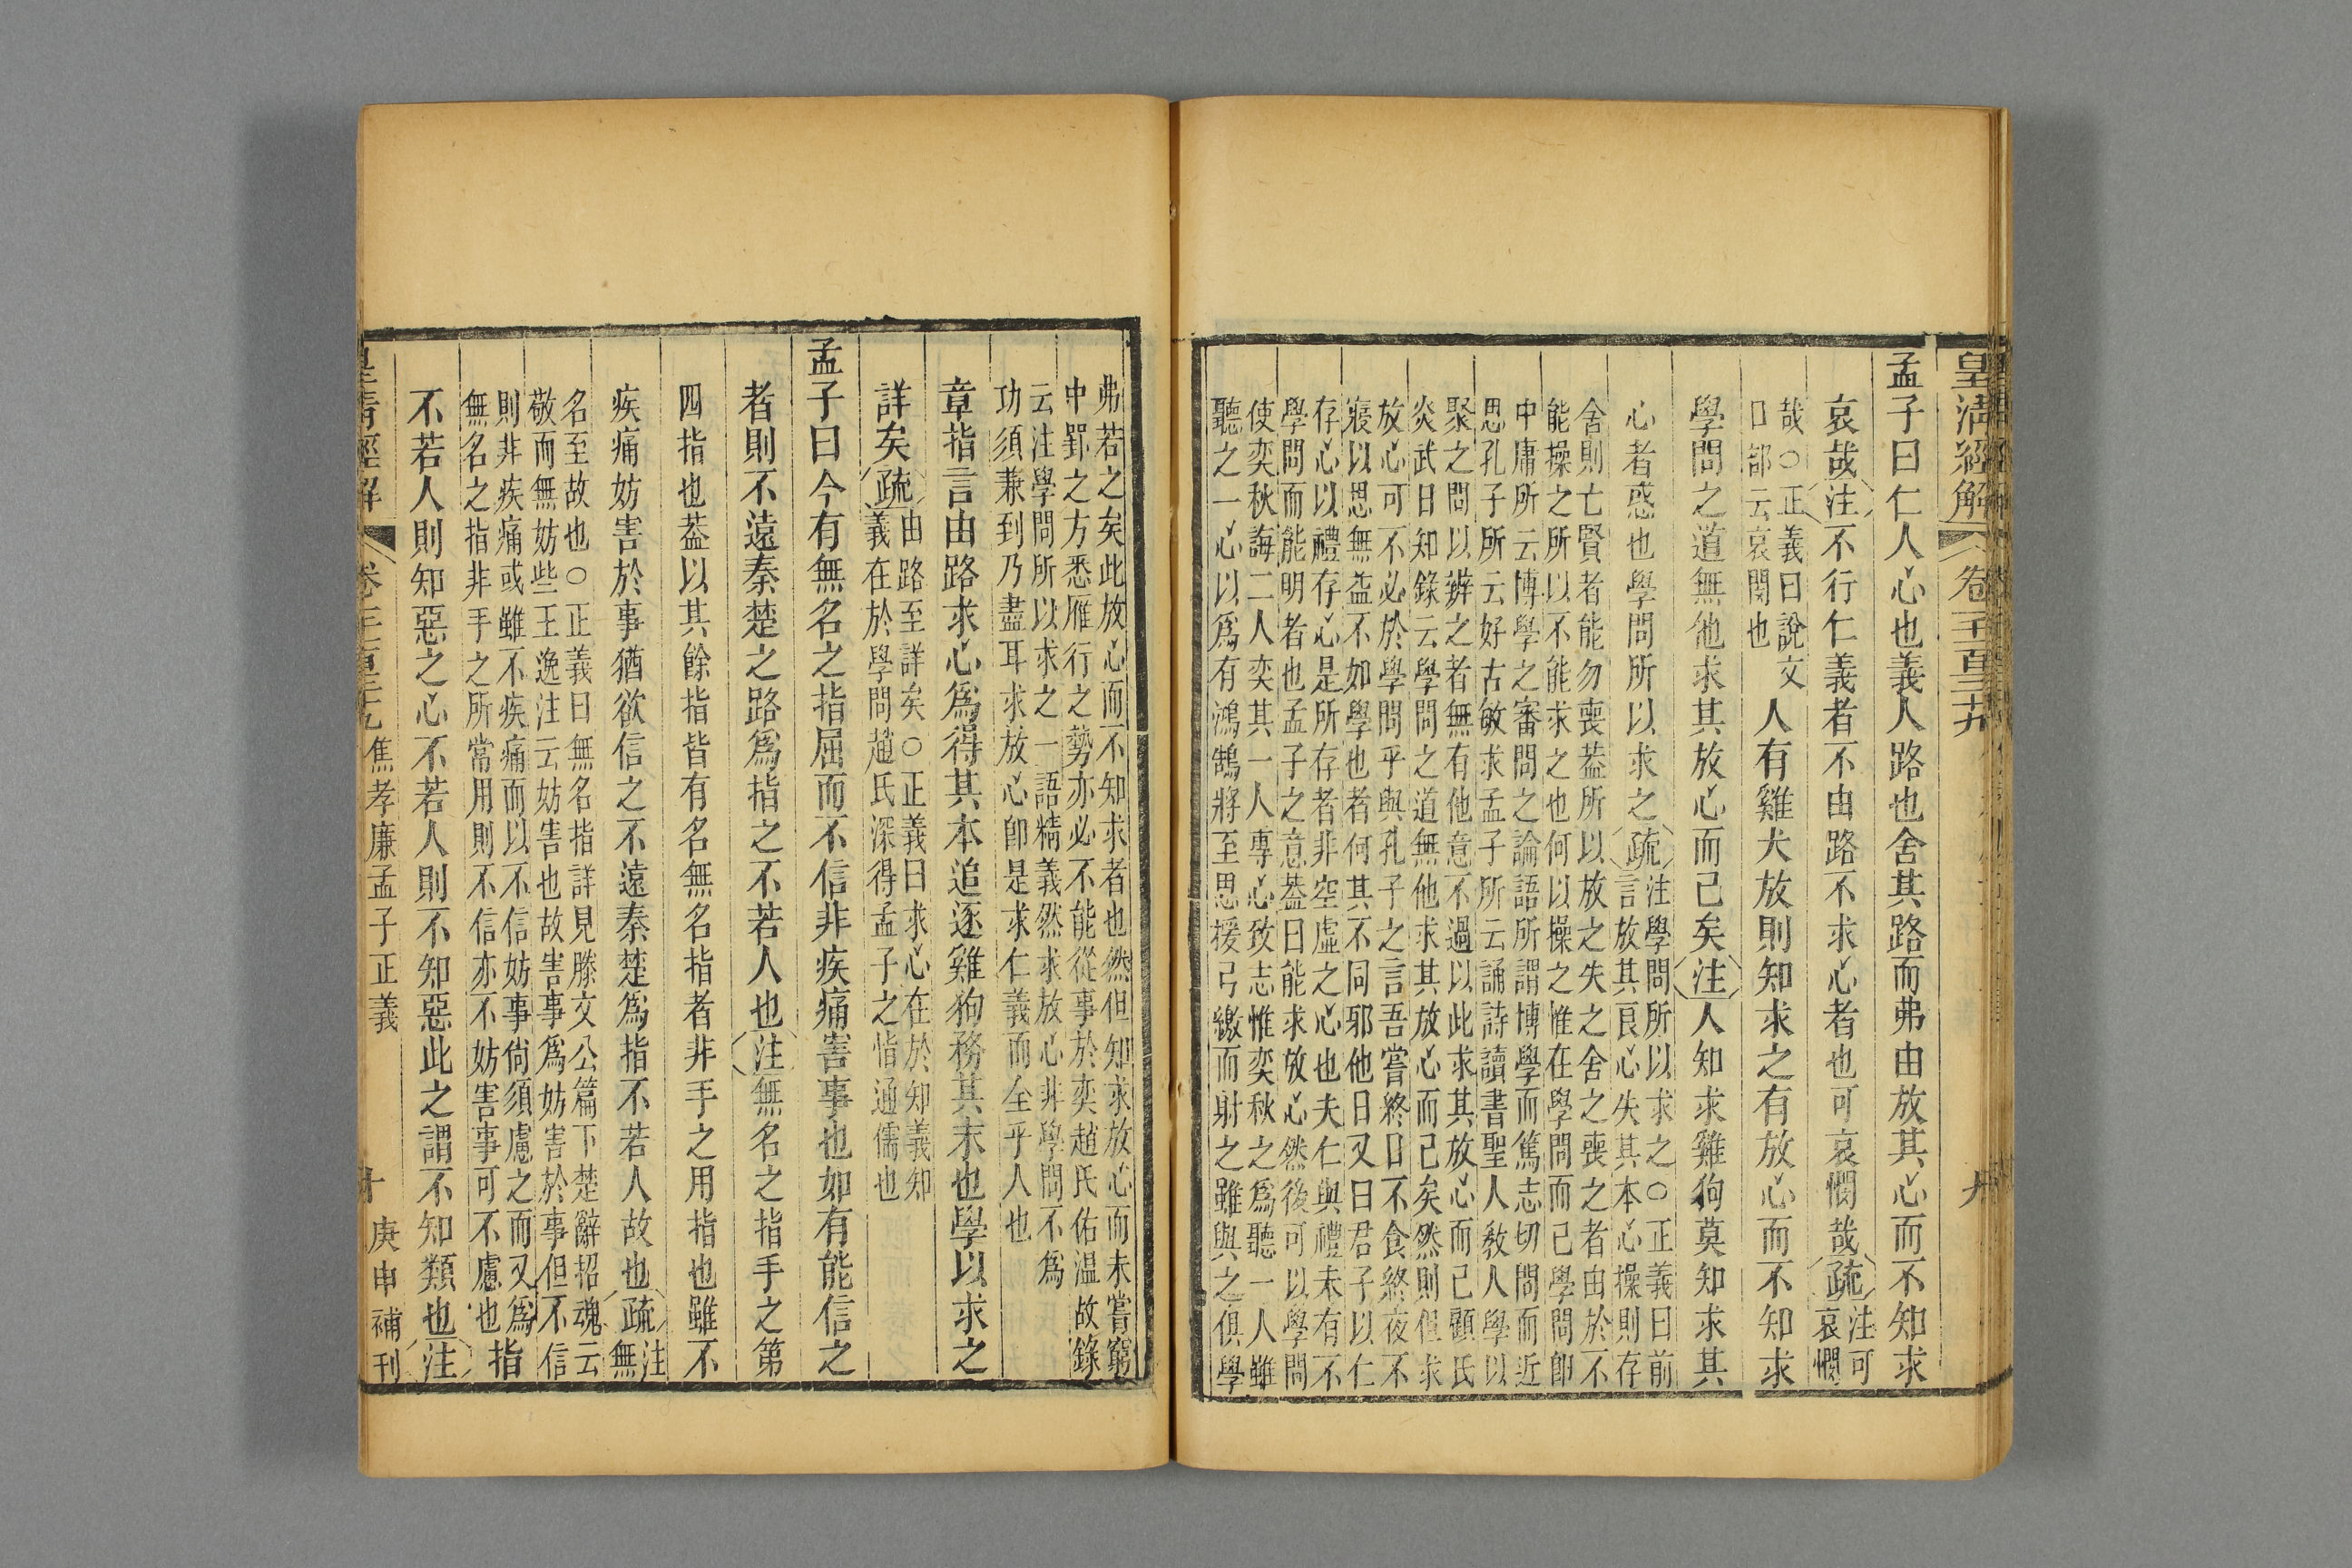 皇清經解
九
孟子曰仁人心也義人路也舍其路而弗由放其心而不知求
哀哉注不行仁義者不由路不求心者也可哀憫哉疏注可
哀憫
哉○正義曰說文
口部云哀閔也
人有雞犬放則知求之有放心而不知求
學問之道無他求其放心而已矣注人知求雞狗莫知求其
心者惑也學問所以求之疏注學問所以求之○正義曰前
言放其良心失其本心操則存
舍則亡賢者能勿喪葢所以放之失之舍之喪之者由於不
能操之所以不能求之也何以操之惟在學問而已學問卽
中庸所云博學之審問之論語所謂博學而篤志切問而近
思孔子所云好古敏求孟子所云誦詩讀書聖人敎人學以
聚之問以辨之者無有他意不過以此求其放心而已顧氏
炎武日知錄云學問之道無他求其放心而已矣然則但求
放心可不必於學問乎與孔子之言吾嘗終日不食終夜不
寢以思無益不如學也者何其不同邪他日又曰君子以仁
存心以禮存心是所存者非空虛之心也夫仁與禮未有不
學問而能明者也孟子之意葢曰能求放心然後可以學問
使奕秋誨二人奕其一人專心致志惟奕秋之爲聽一人雖
聽之一心以爲有鴻鵠將至思援弓繳而射之雖與之俱學
弗若之矣此放心而不知求者也然但知求放心而未嘗窮
中罫之方悉雁行之勢亦必不能從事於奕趙氏佑温故錄
云注學問所以求之一語精義然求放心非學問不爲
功須兼到乃盡耳求放心卽是求仁義而全乎人也
章指言由路求心爲得其本追逐雞狗務其末也學以求之
詳矣疏由路至詳矣○正義曰求心在於知義知
義在於學問趙氏深得孟子之恉通儒也
孟子曰今有無名之指屈而不信非疾痛害事也如有能信之
者則不遠秦楚之路爲指之不若人也注無名之指手之第
四指也葢以其餘指皆有名無名指者非手之用指也雖不
疾痛妨害於事猶欲信之不遠秦楚爲指不若人故也疏注
無
名至故也○正義曰無名指詳見滕文公篇下楚辭招魂云
敬而無妨些王逸注云妨害也故害事爲妨害於事但不信
則非疾痛或雖不疾痛而以不信妨事尙須慮之而又爲
無名之指非手之所常用則不信亦不妨害事可不慮也
指
不若人則知惡之心不若人則不知惡此之謂不知類也注
皇清經解
焦孝廉孟子正義
十
庚申補刊